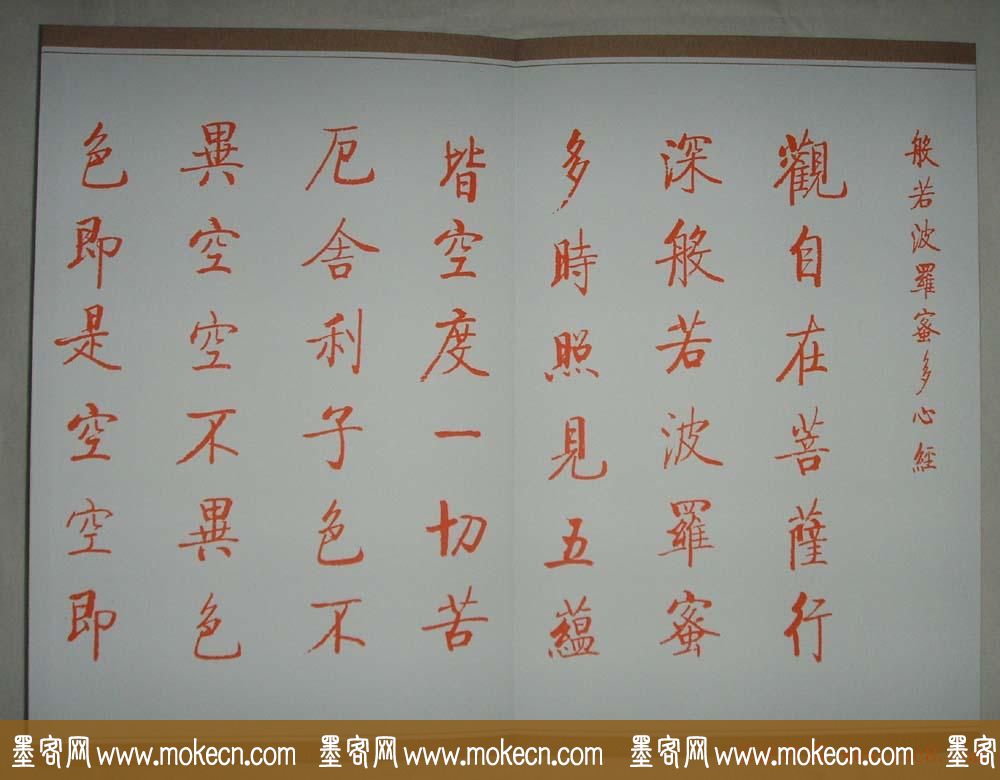 般若波羅蜜多心經
觀自在菩薩行
深般若波羅蜜
多時照見五蘊
皆空度一切苦
厄舍利子色不
異空空不異色
色即是空空即
墨客网 www.mokecn.com 墨客网 www.mokecn.com 墨客网 www.mokecn.com 墨客